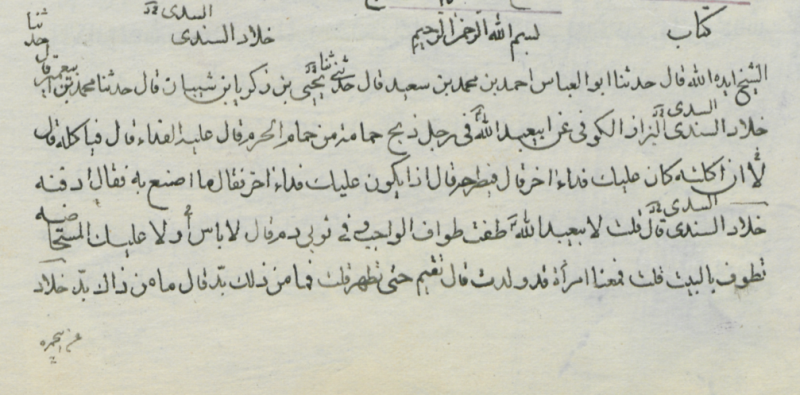 السدى خ
كتاب بسم الله الرحمن الرحيم خلاد السندى حدثنا
الشيخ ايده الله قال حدثنا ابو العباس احمد بن محمد بن سعيد قال حدثنى ثنا يحيى بن زكريا بن شيبان قال حدثنا محمد بن ابي عمير قال
السدى خ
خلاد السندى البزاز الكوفى عن ابيعبد الله فى رجل ذبح حمامة من حمام الحرم قال عليه الفداء قال فياكله قال
لا ان اكلته كان عليك فداء اخر قال فيطرحه قال اذا يكون عليك فداء اخر فقال ما اصنع به فقال ادفنه
السدى خ
خلاد السندى قال قلت لابيعبد الله طفت طواف الواجب و فى ثوبى دم قال لا باس أو لا عليك المستحاضه
تطوف بالبيت قلت فمعنا امرأة قد ولدت قال تقيم حتى تطهر قلت فما من ذلك بد قال ما من ذاك بد خلاد
عن ابيحمزه